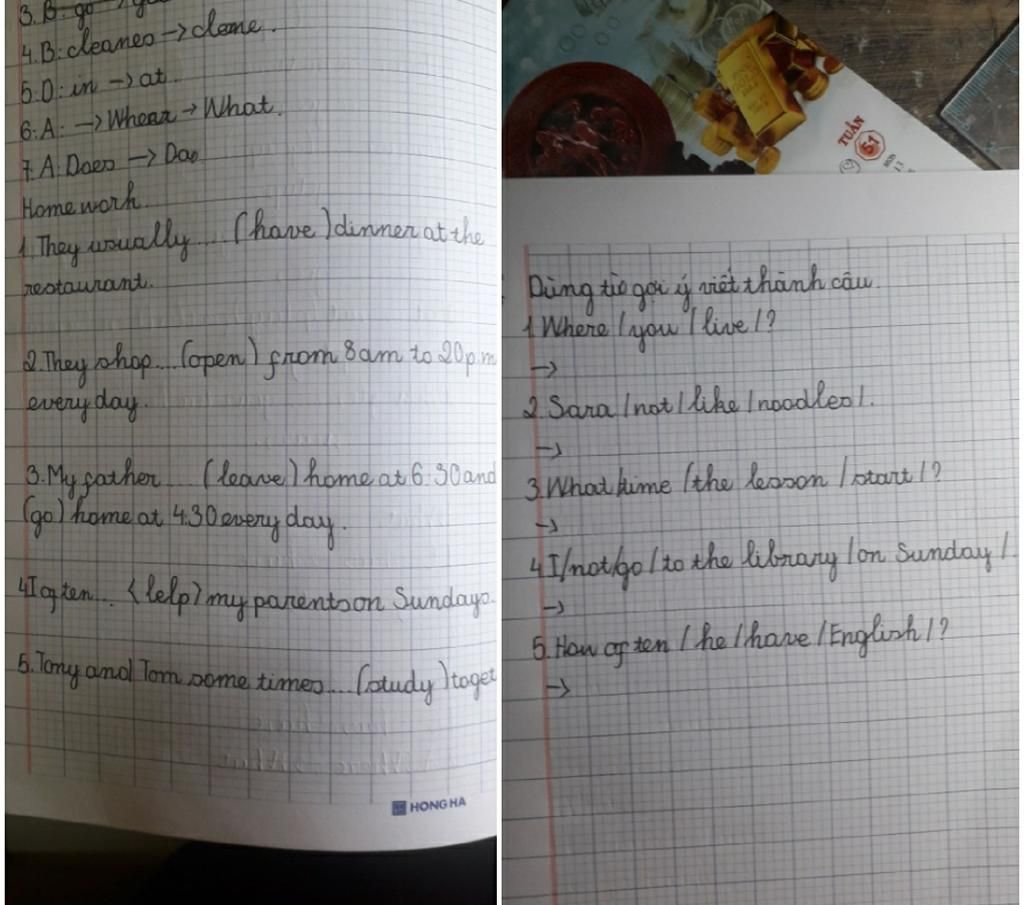 3. B. go
4. B: cleanes → cleane.
5. D: in → at
6: A: → Whear → What.
7. A. Does → Dao
Homework.
1. They usually.... (have) dinner at the
restaurant.
2. They shop.... (open) from 8 am to 20 p.m
every day.
3. My father ... (leave) home at 6:30 and
(go) home at 4:30 every day.
4 I often... (lelp) my parents on Sundays.
5. Tony and Tom some times.... (study) toget
HONG HA
TUẦN
51
Dùng từ gợi ý viết thành câu.
1 Where / you / live / ?
→
2. Sara / not / like / noodles / .
→
3. What time / the lesson / start / ?
→
4 I / not / go / to the library / on Sunday / .
→
5. How often / he / have / English / ?
→